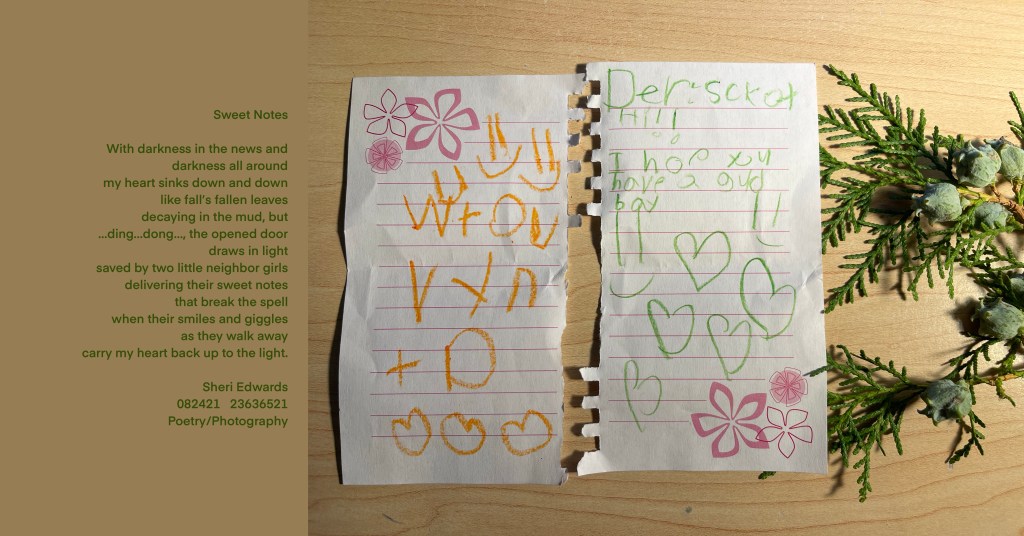 Sweet Notes
With darkness in the news and
darkness all around
my heart sinks down and down
like fall's fallen leaves
decaying in the mud, but
...ding...dong..., the opened door
draws in light
saved by two little neighbor girls
delivering their sweet notes
that break the spell
when their smiles and giggles
as they walk away
carry my heart back up to the light.
Sheri Edwards
082421 23636521
Poetry/Photography
Hi!!
I hop you
have a gud
bay